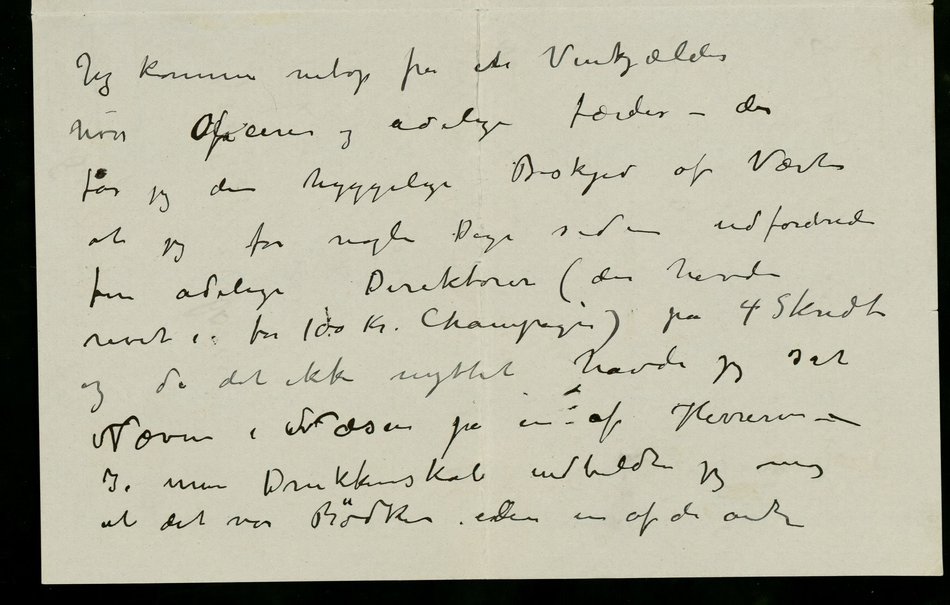 Jeg kommer netop fra en Vinkjælder
hvor Oficerer og adelige færdes – der
får jeg den hyggelige Beskjed af Værten
at jeg for nogle Dage siden udfordrede
fem adelige Direktører (der havde
revet i. for 100 Kr. Champagne) på 4 Skridt
og da det ikke nyttet havde jeg sat
Næven i Næsen på en af Herrerne –
I. min Drukkenskab indbildte jeg mig
at det var Bödker eller en af de andre